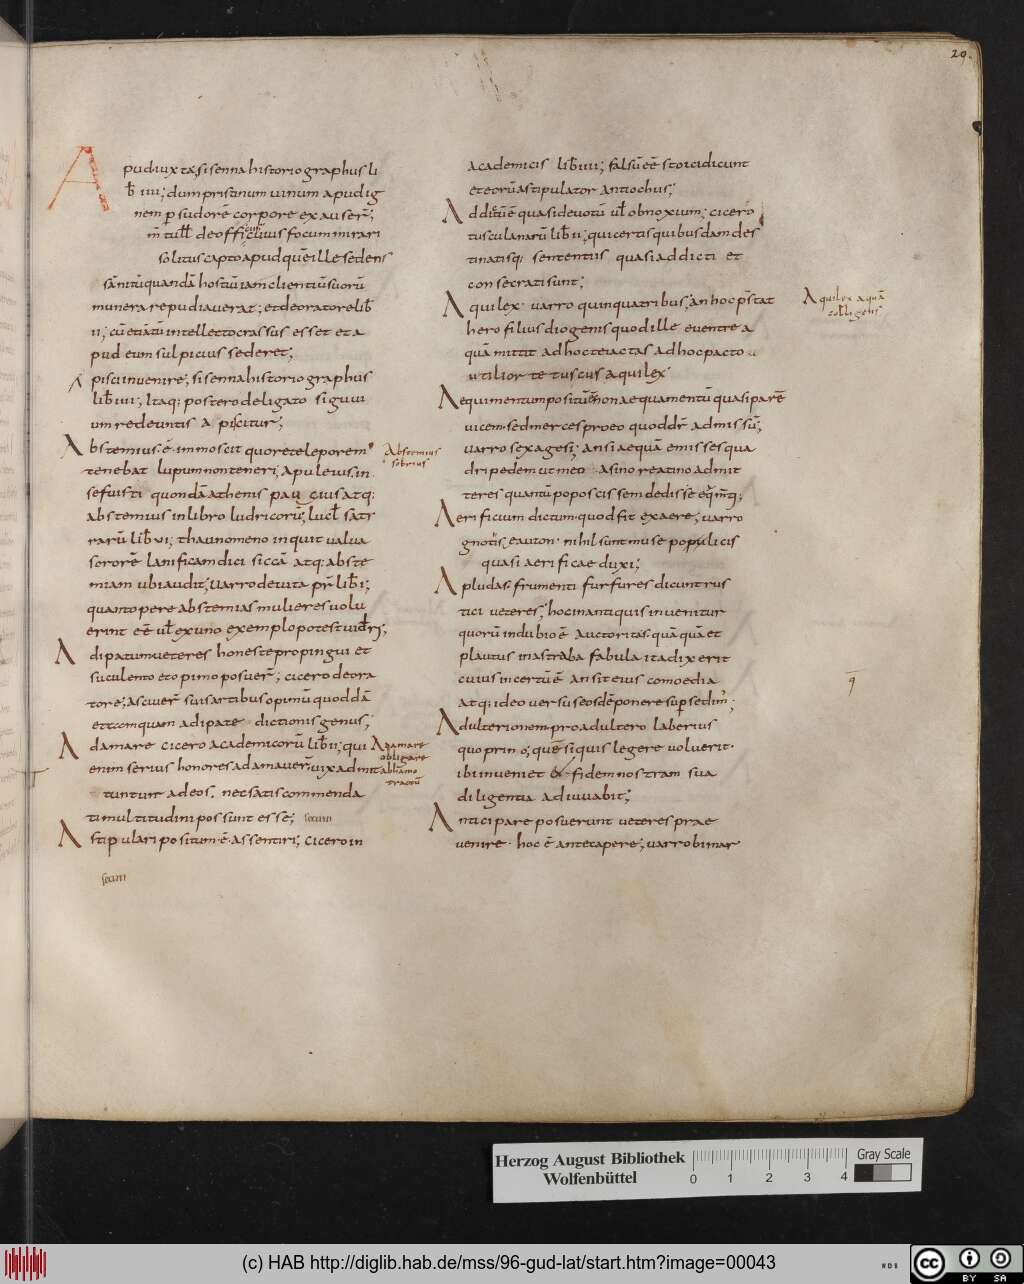 20.
Apud iuxta; sisenna historiographus li
b̄ iiii; dum pristinum uinum apud ig
nem p sudorē corpore exauserr̄;
m̄ tull̄ de officiis focum mirari
solitus capto apud quē ille sedens
sānitū quandā hostiū iam clientiū suorū
munera repudiauerat; et de oratore lib̄
ii; cū etātū intellecto crassus esset et a
pud eum sulpicius sederet;
Apisci inuenire; sisenna historiographus
lib̄ iiii; Itaq; postero deligato signi ui
um redeuntis apiscitur;
Abstemius·ē· immoscit quore te leporem
tenebat lupum non teneri; Apuleius in
sefuisti quondā athenis pau cius atq;
abstemius in libro ludricorū; lucl̄ satr
rarū lib̄ vi; thaunomeno inquit ualua
sororē lanificam dici siccā atq; abste
miam ubi audit; Uarro de uita pr̄ lib̄ i;
quanto pere abstemias mulieres uolu
erint eē ul̄ ex uno exemplo potest uideri;
Adipatum ueteres honeste pro pingui et
suculento et opimo posuer̄; cicero de ora
tore; asciuer̄ suis artibus opimū quoddā
et tcomquam adipate dictionis genus;
Adamare cicero academicorū lib̄ ii; qui
enim serius honores adamauer̄; uix admit
tuntur ad eos. nec satis commenda
ti multitudini possunt esse; secun
Astipulari positum·ē· assentiri; cicero in
secun
Abstemius
sobrius
Adamare
obligare
tractū
academicis lib̄ iiii; falsū eē stoici dicunt
et eorū astipulator antiochus;
Addictū ē quasi deuotū ul̄ obnoxium; cicero
tusculanarū lib̄ ii; qui certis quibusdam des
tinatisq; sententiis quasi addicti et
consecrati sunt;
Aquilex· uarro quinquatribus; an hoc p̄stat
herofilius diogenis quod ille euentre a
quā mittit ad hoc te iactas ad hoc pacto
utilior te tuscus aquilex
Aequimentum positū ē non aequamentū quasi parē
uicem· sed merces proeo quod dr̄ admissū;
uarro sexagesi; an si aequā emissesqua
dripedem ut meo asino reatino admit
teres quantū poposcissem dedisse eq̄m̄q;
Aerificium dictum· quod fit ex aere; uarro
gnotis eauton· nihil sunt muse populicis
quasi aerificae duxi;
Apludas frumenti furfures dicunt rus
tici ueteres; hoc in antiquis inuenitur
quorū in dubio ē auctoritas· quā quā et
plautus in astraba fabula ita dixerit
cuius incertū ē an sit eius comoedia
atq; ideo uersus eos dē ponere supsedim';
Adulterionem pro adultero laberius
quo prin o; quē siquis legere uoluerit·
ibi inueniet & fidem nostram sua
diligentia adiuuabit;
Anticipare posuerunt ueteres prae
uenire· hoc ē antecapere; uarro bimar
Aquilex aquā
colligens
9
Herzog August Bibliothek
Wolfenbüttel
0 1 2 3 4
Gray Scale
(c) HAB http://diglib.hab.de/mss/96-gud-lat/start.htm?image=00043
WDB
cc BY SA